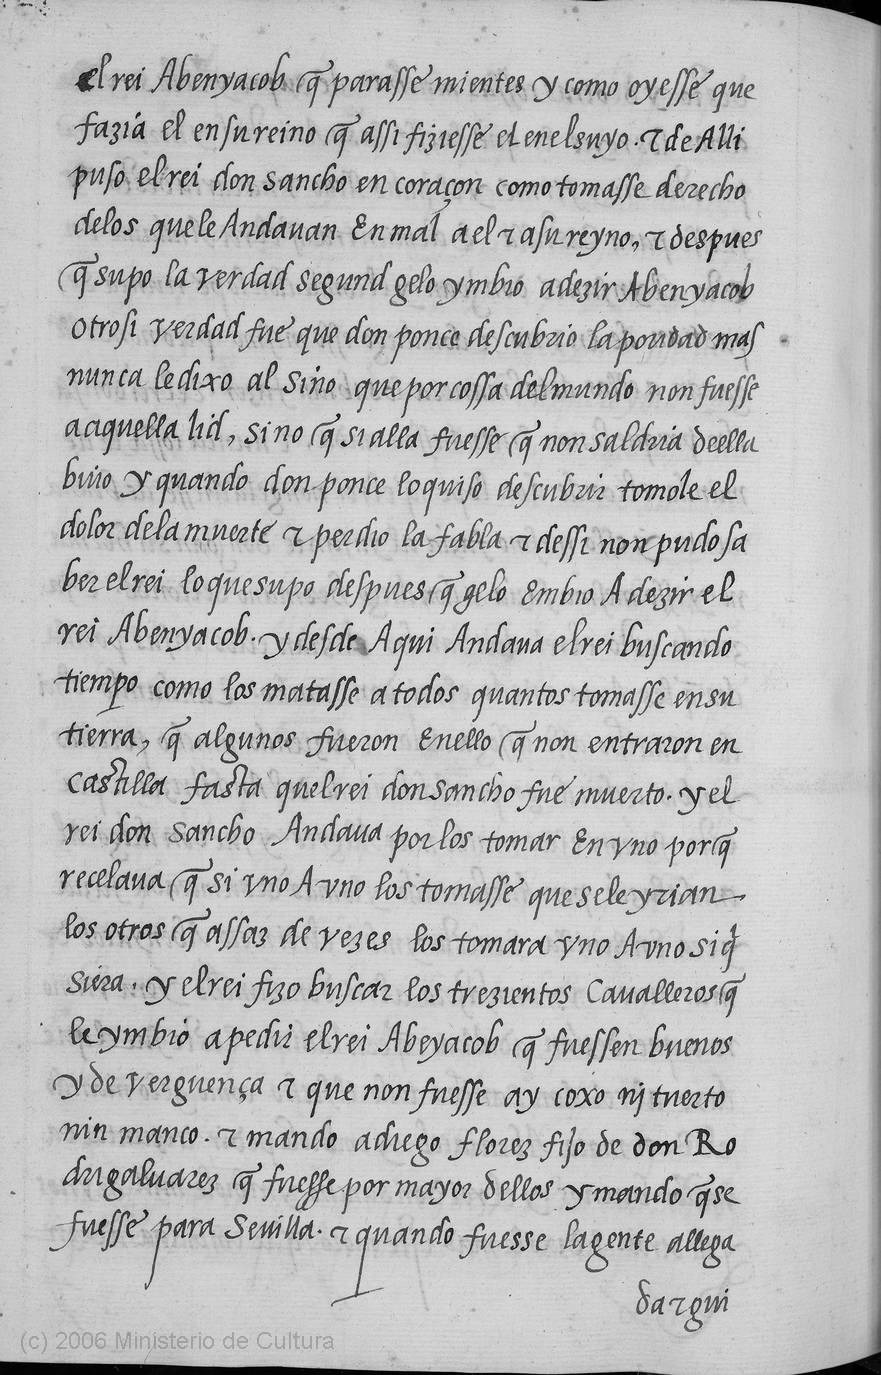 el rei Abenyacob q̃ parasse mientes y como oyesse que
fazia el en su reino q̃ assi fiziesse el en el suyo. τ de Alli
puso el rei don sancho en coraçon como tomasse derecho
delos que le Andauan En mal a el τ a su reyno, τ despues
q̃ supo la verdad segund gelo ymbio a dezir Abenyacob
otrosi verdad fue que don ponce descubrio la poridad mas
nunca le dixo al sino que por cossa del mundo non fuesse
a aquella lid, sino q̃ si alla fuesse q̃ non saldria deella
biuo y quando don ponce lo quiso descubrir tomole el
dolor dela muerte τ perdio la fabla τ dessi non pudo sa
ber el rei lo que supo despues q̃ gelo Embio A dezir el
rei Abenyacob. y desde Aqui Andaua el rei buscando
tiempo como los matasse a todos quantos tomasse en su
tierra, q̃ algunos fueron Enello q̃ non entraron en
castilla fasta quel rei don sancho fue muerto. y el
rei don sancho Andaua por los tomar En vno porq̃
recelaua q̃ si vno A vno los tomasse que se le yrian
los otros q̃ assaz de vezes los tomara vno A vno si q̃
siera. y el rei fizo buscar los trezientos Caualleros q̃
le ymbio a pedir el rei Abeyacob q̃ fuessen buenos
y de verguença τ que non fuesse ay coxo nj tuerto
nin manco. τ mando a diego florez fijo de don Ro
drigaluarez q̃ fuesse por mayor dellos y mando q̃ se
fuesse para Seuilla. τ quando fuesse la gente allega
da τ gui
(c) 2006 Ministerio de Cultura